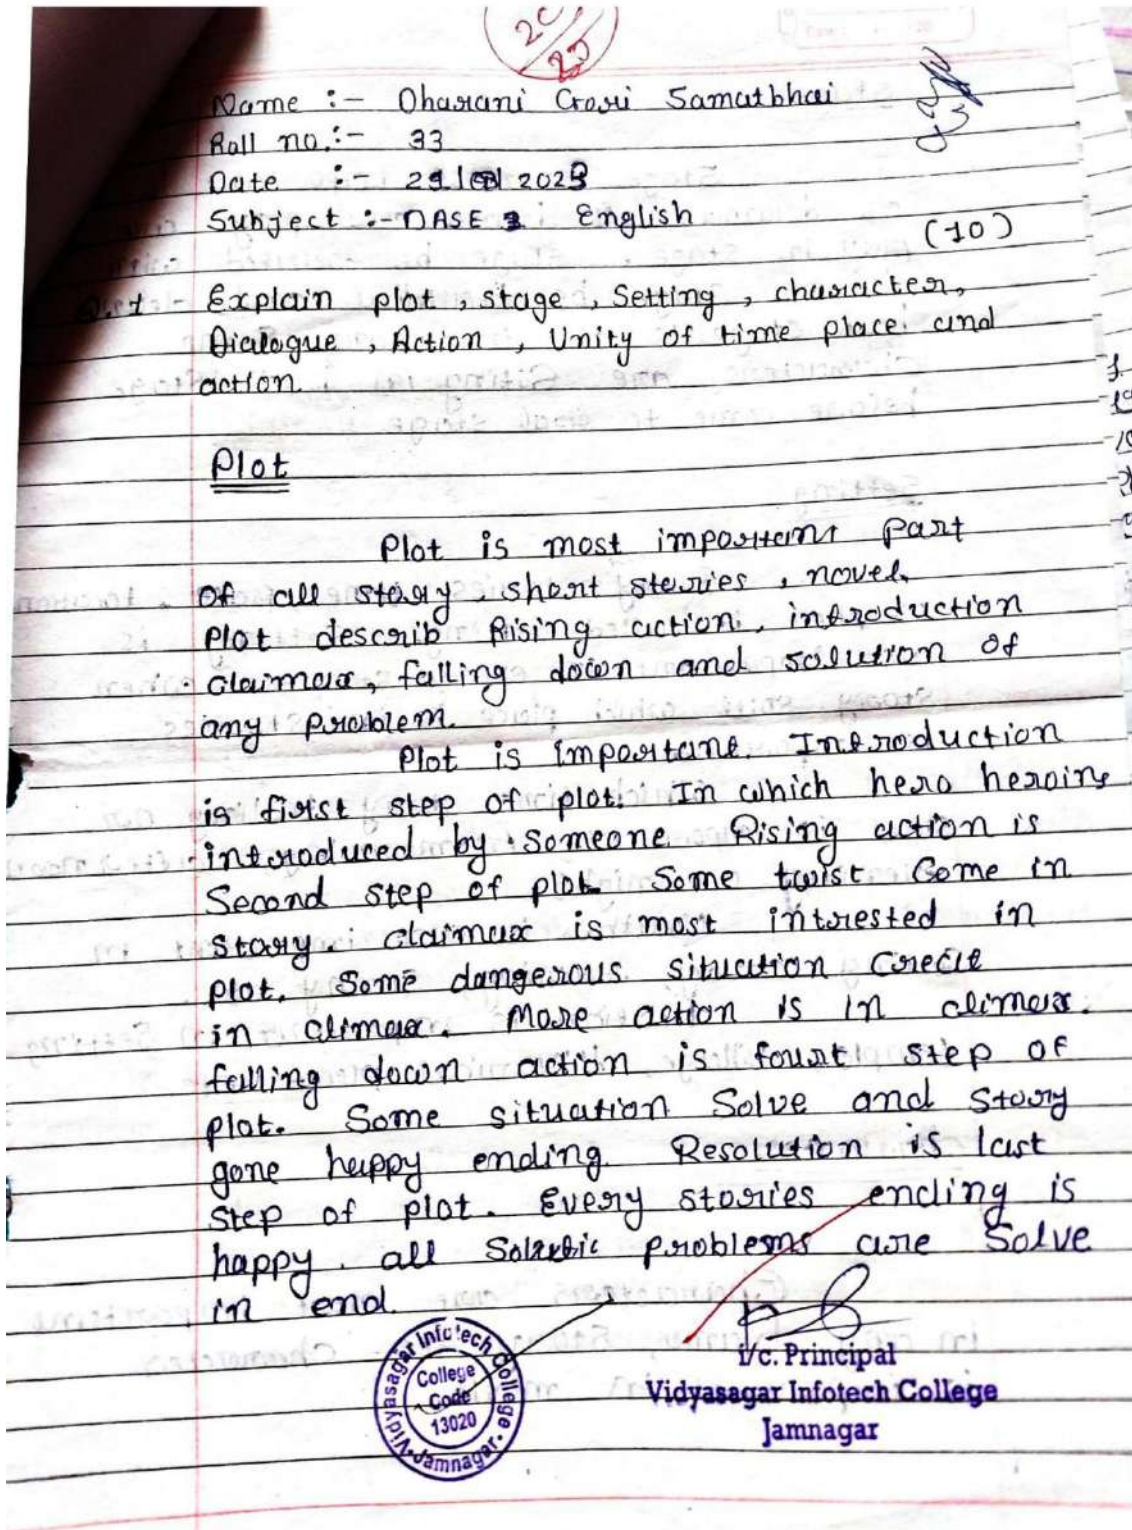 20
20
Name :- Dharani Gori Samatbhai
Roll no.:- 33
Date :- 2023
Subject :- DASE English
(10)
Q.1 - Explain plot, stage, Setting, character,
Dialogue, Action, Unity of time place and
action.
Plot
Plot is most important Part
of all story, short stories, novel.
Plot describ Rising action, introduction
claimax, falling down and solution of
any problem.
Plot is important. Introduction
is first step of plot. In which hero heroine
introduced by someone. Rising action is
Second step of plot. Some twist Come in
story. claimax is most intrested in
plot. Some dangerous situation Creat
in climax. More action is in climax.
falling down action is fourt step of
plot. Some situation Solve and Story
gone happy ending. Resolution is last
step of plot. Every stories ending is
happy. all problems are Solve
in end.
Vidyasagar Infotech College
College
Code
13020
Jamnagar
i/c. Principal
Vidyasagar Infotech College
Jamnagar